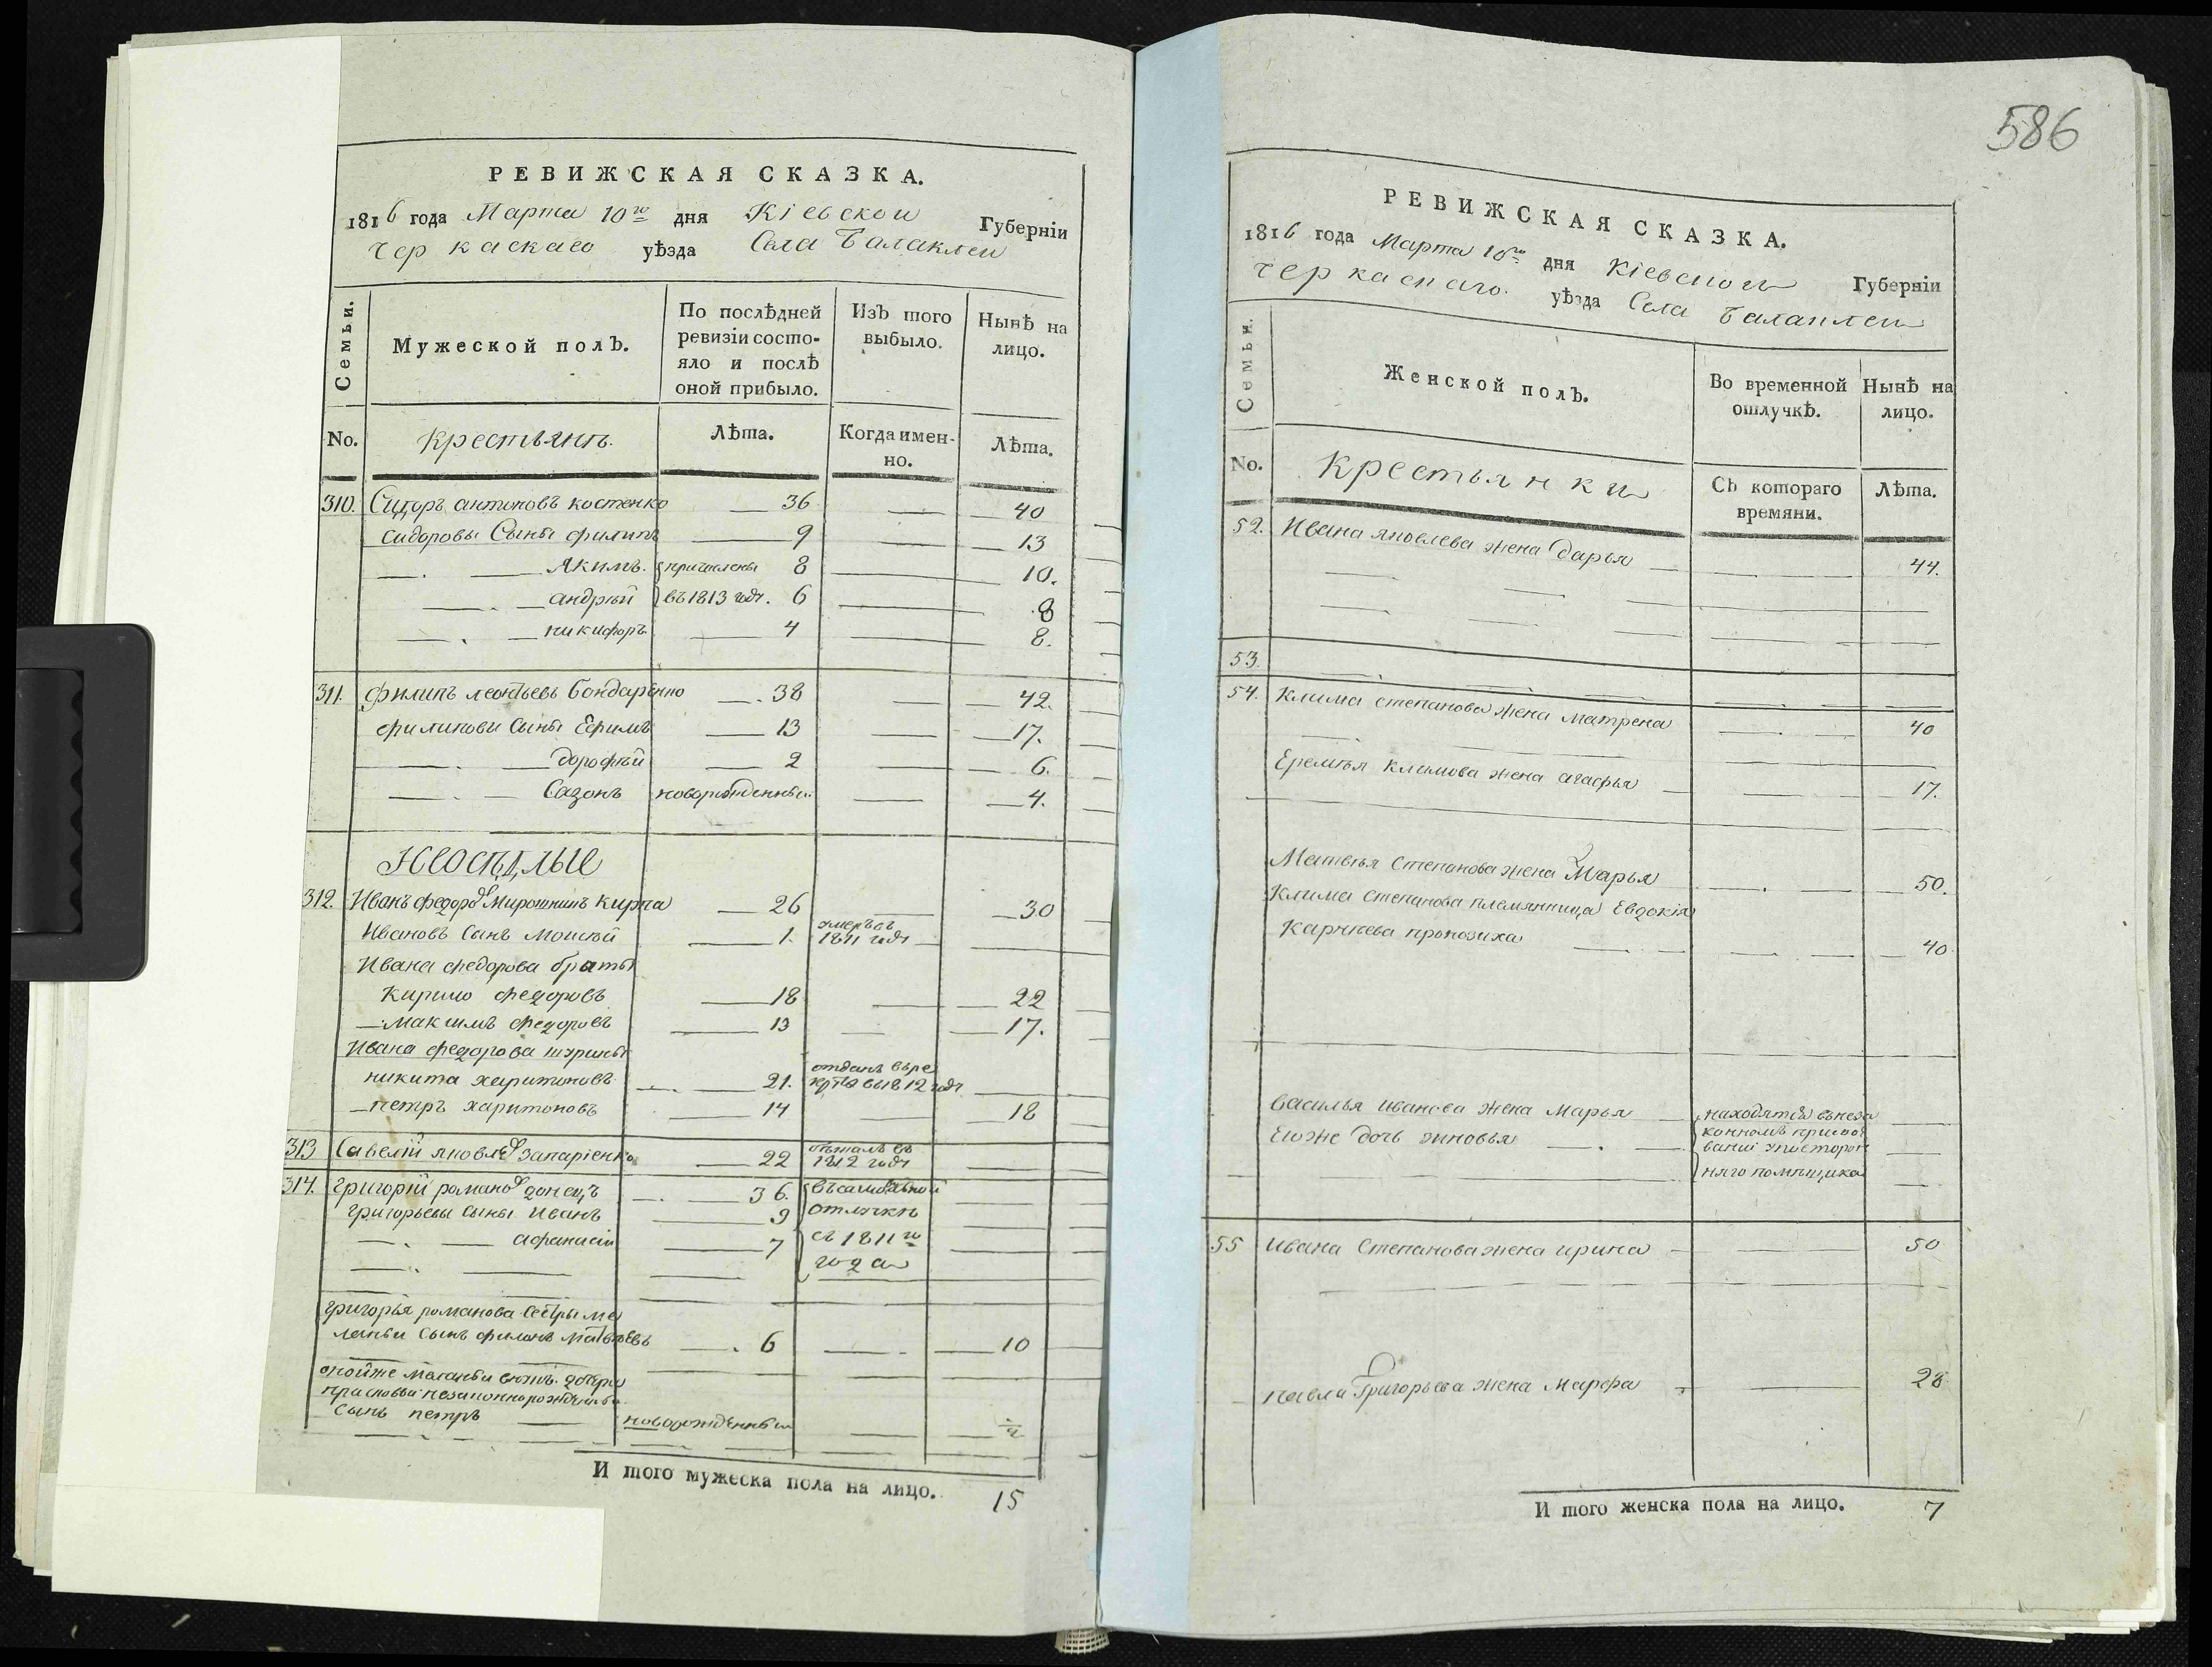 РЕВИЖСКАЯ СКАЗКА.
1816 года Марта 10го дня Кіевской Губерніи
черкаскаго уѣзда Села Балаклеи
Семьи.
Мужеской полъ.
По послѣдней ревизіи состояло и послѣ оной прибыло.
Изъ того выбыло.
Нынѣ на лицо.
No.
крестьянъ.
Лѣта.
Когда именно.
Лѣта.
310. Сидоръ антоновъ костенко 36 40
сидоровы Сыны филипъ 9 13
Якимъ. причислены 8 10.
андрѣй въ 1813 годѣ. 6 8
никифоръ 4 8.
311. филипъ леонтьевъ бондаренко 38 42.
филиповы Сыны Ефимъ 13 17.
дорофѣй 2 6.
Сазонъ новорожденный 4.
Неосѣдлые
312. Иванъ федоровъ Мирошникъ кирпа 26 30
Ивановъ Сынъ Мойсѣй 1. умеръ въ 1811 годѣ
Ивана федорова братья
Кирило федоровъ 18 22
максимъ федоровъ 13 17.
Ивана федорова шурины
никита харитоновъ 21. отданъ въ рекруты въ 1812 годѣ
петръ харитоновъ 14 18
313 Савелій яковлевъ запаріенко 22 бѣжалъ въ 1812 годѣ
314. григорій романовъ донецъ 36. въ самовольной
григорьевы Сыны Иванъ 9 отлучкѣ
афанасій 7 съ 1811го
года
григорья романова Сестры ме
ланьи Сынъ филонъ Матвѣевъ 6 10
сынъ петръ новорожденный ½
И того мужеска пола на лицо. 15
586
РЕВИЖСКАЯ СКАЗКА.
1816 года Марта 10го дня Кіевской Губерніи
черкаскаго. уѣзда Села балаклеи
Семьи.
Женской полъ.
Во временной отлучкѣ.
Нынѣ на лицо.
No.
крестьянки
Съ котораго времяни.
Лѣта.
52. Ивана яковлева жена дарья 44.
53.
54. Клима степанова жена матрена 40
Еремѣя климова жена агафья 17.
Матвѣя Степанова жена Марья 50.
Клима степанова племянница Евдокія
Карнѣева 40
василья иванова жена марья находятся въ неза
Еюже дочь зиновья конномъ присво
ваніи у посторон
няго помѣщика
55 ивана Степанова жена ирина 50
павла Григорьева жена Марфа 28
И того женска пола на лицо. 7